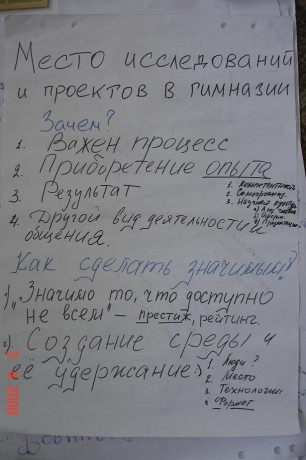 Место исследований
и проектов в гимназии
Зачем?
1. Важен процесс
2. Приобретение опыта
1. Компетентной
2. Самоорганиз.
3. Научной
3. Результат
4. Другой вид деятельности
общения.
Как сделать значимым?
1) „Значимо то, что доступно
не всем" – престиж, рейтинг.
2) Создание среды и
её удержание:
1. Люди?
2. Место
3. Технологии
4. Формат